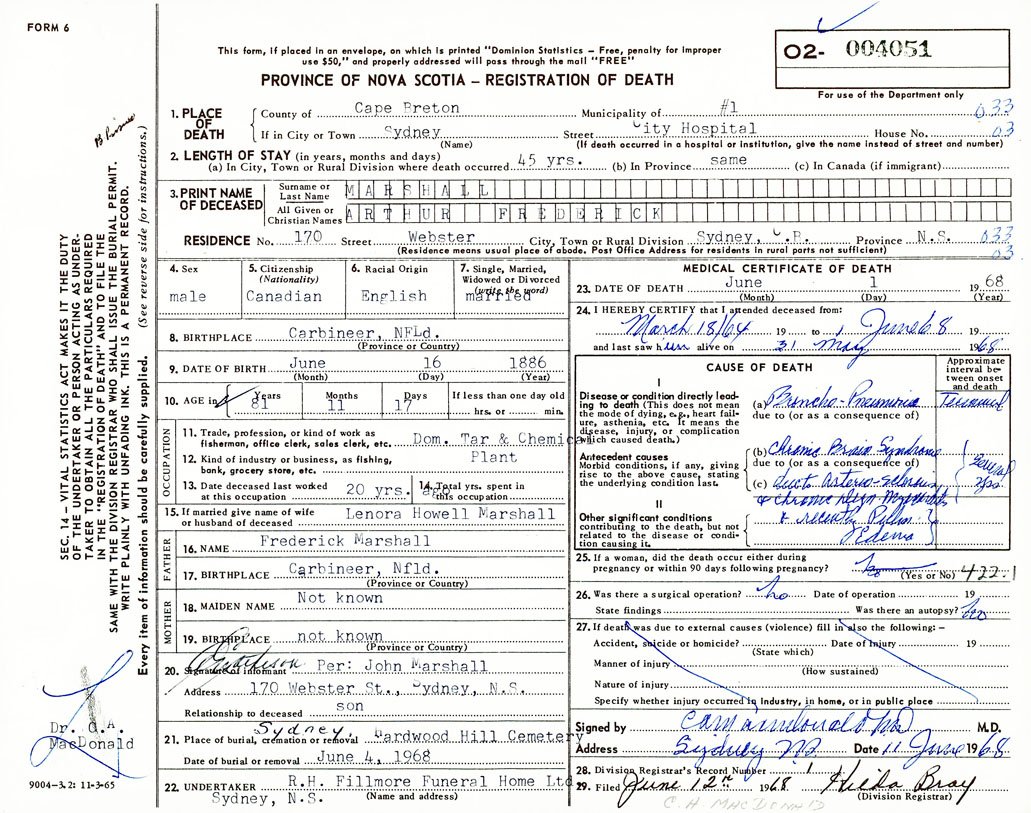 FORM 6
This form, if placed in an envelope, on which is printed "Dominion Statistics – Free, penalty for improper
use $50," and properly addressed will pass through the mail "FREE"
PROVINCE OF NOVA SCOTIA – REGISTRATION OF DEATH
O2- 004051
For use of the Department only
1. PLACE OF DEATH
County of Cape Breton Municipality of #1 033
If in City or Town Sydney Street City Hospital House No. 03
(Name) (If death occurred in a hospital or institution, give the name instead of street and number)
2. LENGTH OF STAY (in years, months and days)
(a) In City, Town or Rural Division where death occurred 45 yrs. (b) In Province same (c) In Canada (if immigrant)
3. PRINT NAME OF DECEASED
Surname or Last Name MARSHALL
All Given or Christian Names ARTHUR FREDERICK
RESIDENCE No. 170 Street Webster City, Town or Rural Division Sydney, C.B. Province N.S. 033
(Residence means usual place of abode. Post Office Address for residents in rural parts not sufficient) 03
4. Sex
male
5. Citizenship
(Nationality)
Canadian
6. Racial Origin
English
7. Single, Married,
Widowed or Divorced
(write the word)
married
8. BIRTHPLACE Carbineer, NFLd.
(Province or Country)
9. DATE OF BIRTH June 16 1886
(Month) (Day) (Year)
10. AGE in Years Months Days If less than one day old
81 11 17 hrs. or min.
OCCUPATION
11. Trade, profession, or kind of work as
fisherman, office clerk, sales clerk, etc. Dom. Tar & Chemica
12. Kind of industry or business, as fishing,
bank, grocery store, etc. Plant
13. Date deceased last worked
at this occupation 20 yrs. ago
14. Total yrs. spent in
this occupation
15. If married give name of wife
or husband of deceased Lenora Howell Marshall
FATHER
16. NAME Frederick Marshall
17. BIRTHPLACE Carbineer, Nfld.
(Province or Country)
MOTHER
18. MAIDEN NAME Not known
19. BIRTHPLACE not known
(Province or Country)
20. Signature of informant Per: John Marshall
Address 170 Webster St., Sydney, N.S.
Relationship to deceased son
21. Place of burial, cremation or removal Sydney, Hardwood Hill Cemetery
Date of burial or removal June 4, 1968
22. UNDERTAKER R.H. Fillmore Funeral Home Ltd
Sydney, N.S. (Name and address)
MEDICAL CERTIFICATE OF DEATH
23. DATE OF DEATH June 1 1968
(Month) (Day) (Year)
24. I HEREBY CERTIFY that I attended deceased from:
March 18/64 19 to 1 June 68 19
and last saw him alive on 31 May 1968
CAUSE OF DEATH
Approximate
interval be-
tween onset
and death
I
Disease or condition directly lead-
ing to death (This does not mean
the mode of dying, e.g., heart fail-
ure, asthenia, etc. It means the
disease, injury, or complication
which caused death.)
(a) Broncho-Pneumonia Terminal
due to (or as a consequence of)
Antecedent causes
Morbid conditions, if any, giving
rise to the above cause, stating
the underlying condition last.
(b) Chronic Brain Syndrome
due to (or as a consequence of)
(c) due to Arterio-Sclerosis
several yrs.
& Chronic
II
Other significant conditions
contributing to the death, but not
related to the disease or condi-
tion causing it.
& recently Pulm.
Edema
25. If a woman, did the death occur either during
pregnancy or within 90 days following pregnancy? no (Yes or No) 422.1
26. Was there a surgical operation? no Date of operation 19
State findings Was there an autopsy? no
27. If death was due to external causes (violence) fill in also the following: –
Accident, suicide or homicide? Date of Injury 19
(State which)
Manner of injury
(How sustained)
Nature of injury
Specify whether injury occurred in Industry, in home, or in public place
Signed by C A MacDonald MD M.D.
Address Sydney NS Date 11 June 1968
28. Division Registrar's Record Number 1
29. Filed June 12th 1968 Hilda Bray
(Division Registrar)
C. A. MACDONALD
SEC. 14 – VITAL STATISTICS ACT MAKES IT THE DUTY
OF THE UNDERTAKER OR PERSON ACTING AS UNDER-
TAKER TO OBTAIN ALL THE PARTICULARS REQUIRED
IN THE "REGISTRATION OF DEATH" AND TO FILE THE
SAME WITH THE DIVISION REGISTRAR WHO SHALL ISSUE THE BURIAL PERMIT.
WRITE PLAINLY WITH UNFADING INK. THIS IS A PERMANENT RECORD.
Every item of information should be carefully supplied. (See reverse side for instructions.)
Dr. C.A.
MacDonald
9004–3.2: 11-3-65